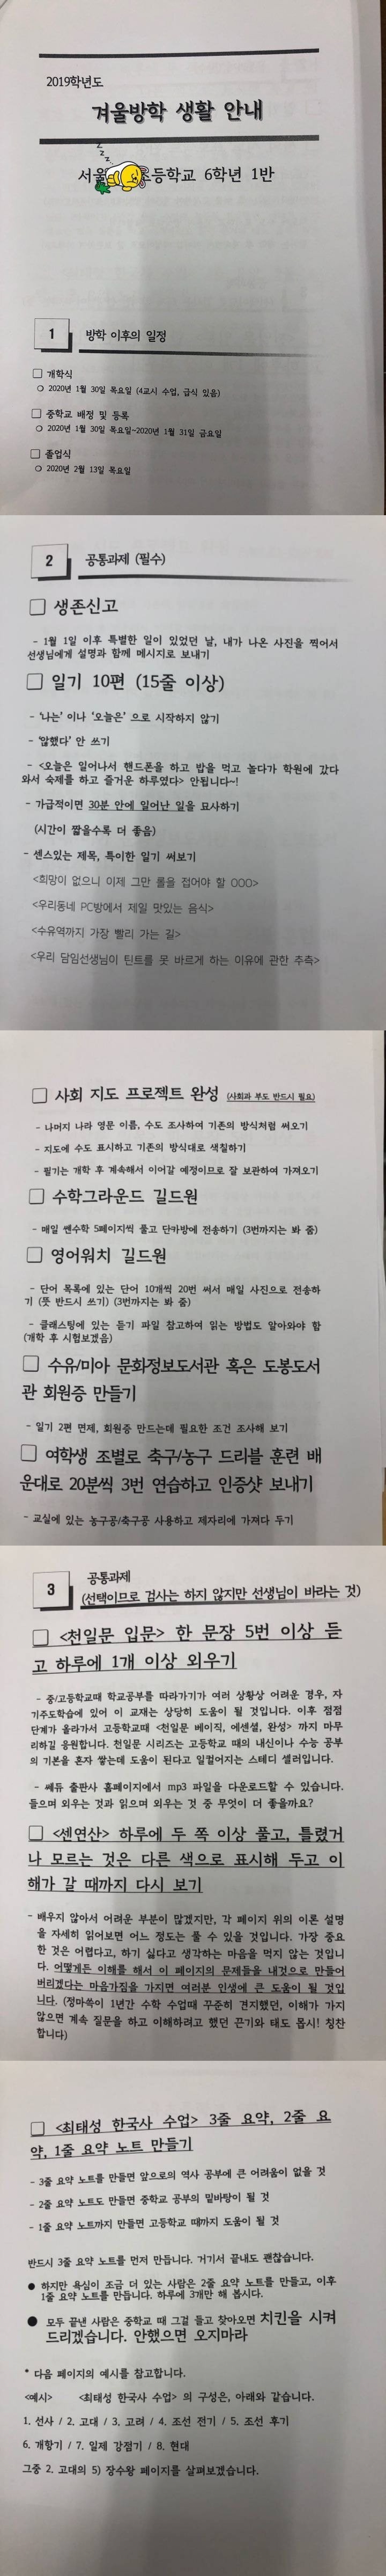 2019학년도
겨울방학 생활 안내
서울 초등학교 6학년 1반
1 방학 이후의 일정
□ 개학식
○ 2020년 1월 30일 목요일 (4교시 수업, 급식 있음)
□ 중학교 배정 및 등록
○ 2020년 1월 30일 목요일~2020년 1월 31일 금요일
□ 졸업식
○ 2020년 2월 13일 목요일
2 공통과제 (필수)
□ 생존신고
- 1월 1일 이후 특별한 일이 있었던 날, 내가 나온 사진을 찍어서
선생님에게 설명과 함께 메시지로 보내기
□ 일기 10편 (15줄 이상)
- '나는' 이나 '오늘은' 으로 시작하지 않기
- '않했다' 안 쓰기
- <오늘은 일어나서 핸드폰을 하고 밥을 먹고 놀다가 학원에 갔다
와서 숙제를 하고 즐거운 하루였다> 안됩니다~!
- 가급적이면 30분 안에 일어난 일을 묘사하기
(시간이 짧을수록 더 좋음)
- 센스있는 제목, 특이한 일기 써보기
<희망이 없으니 이제 그만 롤을 접어야 할 OOO>
<우리동네 PC방에서 제일 맛있는 음식>
<수유역까지 가장 빨리 가는 길>
<우리 담임선생님이 틴트를 못 바르게 하는 이유에 관한 추측>
□ 사회 지도 프로젝트 완성 (사회과 부도 반드시 필요)
- 나머지 나라 영문 이름, 수도 조사하여 기존의 방식처럼 써오기
- 지도에 수도 표시하고 기존의 방식대로 색칠하기
- 필기는 개학 후 계속해서 이어갈 예정이므로 잘 보관하여 가져오기
□ 수학그라운드 길드원
- 매일 쎈수학 5페이지씩 풀고 단카방에 전송하기 (3번까지는 봐 줌)
□ 영어워치 길드원
- 단어 목록에 있는 단어 10개씩 20번 써서 매일 사진으로 전송하
기 (뜻 반드시 쓰기) (3번까지는 봐 줌)
- 클래스팅에 있는 듣기 파일 참고하여 읽는 방법도 알아와야 함
(개학 후 시험보겠음)
□ 수유/미아 문화정보도서관 혹은 도봉도서
관 회원증 만들기
- 일기 2편 면제, 회원증 만드는데 필요한 조건 조사해 보기
□ 여학생 조별로 축구/농구 드리블 훈련 배
운대로 20분씩 3번 연습하고 인증샷 보내기
- 교실에 있는 농구공/축구공 사용하고 제자리에 가져다 두기
3 공통과제
(선택이므로 검사는 하지 않지만 선생님이 바라는 것)
□ <천일문 입문> 한 문장 5번 이상 듣
고 하루에 1개 이상 외우기
- 중/고등학교때 학교공부를 따라가기가 여러 상황상 어려운 경우, 자
기주도학습에 있어 이 교재는 상당히 도움이 될 것입니다. 이후 점점
단계가 올라가서 고등학교때 <천일문 베이직, 에센셜, 완성> 까지 마무
리하길 응원합니다. 천일문 시리즈는 고등학교 때의 내신이나 수능 공부
의 기본을 혼자 쌓는데 도움이 된다고 일컬어지는 스테디 셀러입니다.
- 쎄듀 출판사 홈페이지에서 mp3 파일을 다운로드할 수 있습니다.
들으며 외우는 것과 읽으며 외우는 것 중 무엇이 더 좋을까요?
□ <센연산> 하루에 두 쪽 이상 풀고, 틀렸거
나 모르는 것은 다른 색으로 표시해 두고 이
해가 갈 때까지 다시 보기
- 배우지 않아서 어려운 부분이 많겠지만, 각 페이지 위의 이론 설명
을 자세히 읽어보면 어느 정도는 풀 수 있을 것입니다. 가장 중요
한 것은 어렵다고, 하기 싫다고 생각하는 마음을 먹지 않는 것입니
다. 어떻게든 이해를 해서 이 페이지의 문제들을 내것으로 만들어
버리겠다는 마음가짐을 가지면 여러분 인생에 큰 도움이 될 것입
니다. (정마쏙이 1년간 수학 수업때 꾸준히 견지했던, 이해가 가지
않으면 계속 질문을 하고 이해하려고 했던 끈기와 태도 몹시! 칭찬
합니다)
□ <최태성 한국사 수업> 3줄 요약, 2줄 요
약, 1줄 요약 노트 만들기
- 3줄 요약 노트를 만들면 앞으로의 역사 공부에 큰 어려움이 없을 것
- 2줄 요약 노트도 만들면 중학교 공부의 밑바탕이 될 것
- 1줄 요약 노트까지 만들면 고등학교 때까지 도움이 될 것
반드시 3줄 요약 노트를 먼저 만듭니다. 거기서 끝내도 괜찮습니다.
● 하지만 욕심이 조금 더 있는 사람은 2줄 요약 노트를 만들고, 이후
1줄 요약 노트를 만듭니다. 하루에 3개만 해 봅시다.
● 모두 끝낸 사람은 중학교 때 그걸 들고 찾아오면 치킨을 시켜
드리겠습니다. 안했으면 오지마라
* 다음 페이지의 예시를 참고합니다.
<예시> <최태성 한국사 수업> 의 구성은, 아래와 같습니다.
1. 선사 / 2. 고대 / 3. 고려 / 4. 조선 전기 / 5. 조선 후기
6. 개항기 / 7. 일제 강점기 / 8. 현대
그중 2. 고대의 5) 장수왕 페이지를 살펴보겠습니다.